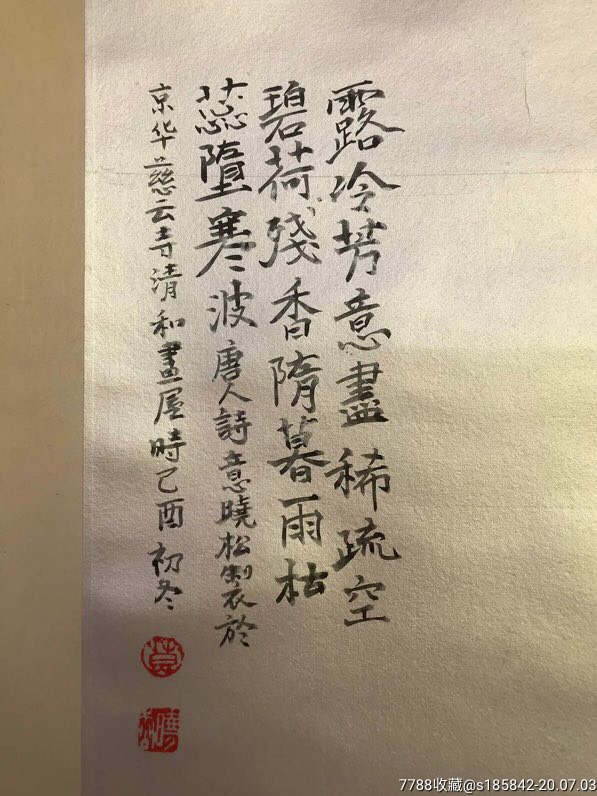 露冷芳意盡稀疏空
碧荷殘香隋暮雨枯
蕊墮寒波唐人詩意曉松製於
京华慈云寺清和畫屋時己酉初冬
7788收藏@s185842-20.07.03